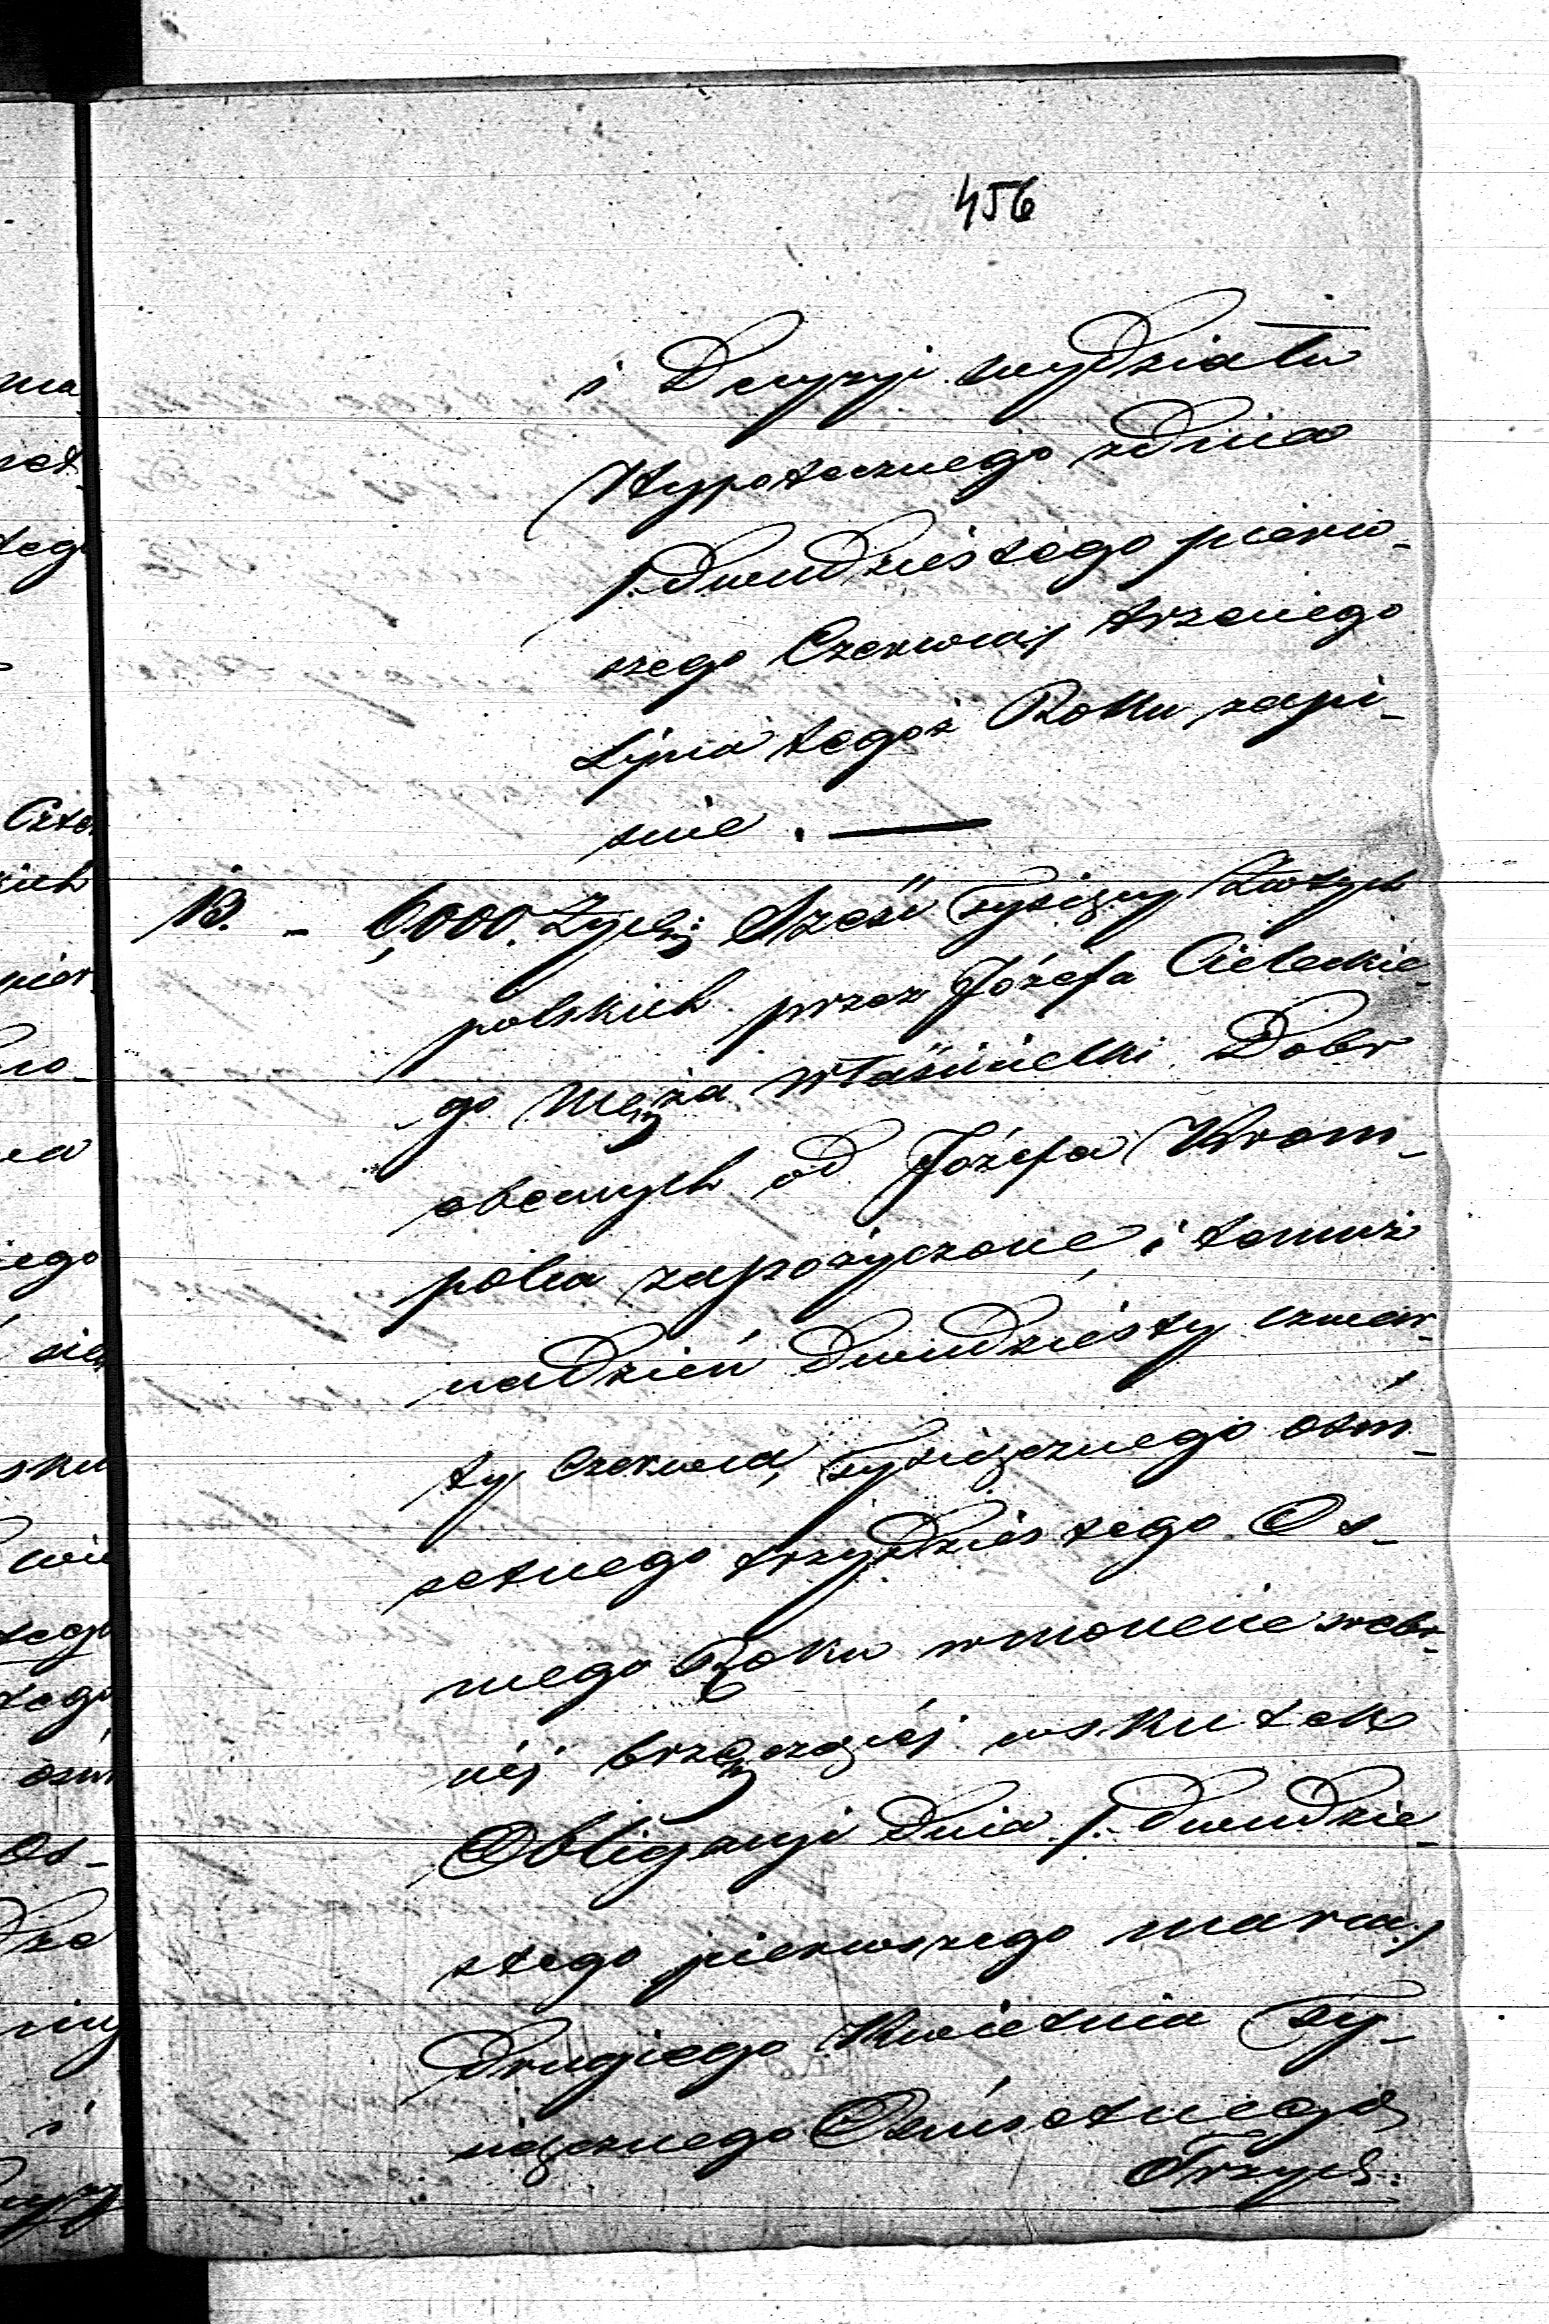 456
i Decyzyi wydziału
Hypotecznego zdnia
/. dwudziestego pierw-
szego Czerwca / trzeciego
Lipca tegoż Roku zapi-
sane. —
13. - 6,000. Złych Sześć Tysięcy Złotych
polskich przez Józefa Cieleckie-
go Męża właścicielki Dobr
obecnych od Józefa Krom-
polca zapożyczone, i temuż
nadzień dwudziesty czwar-
ty Czerwca, Tysiącznego ośm-
setnego trzydziestego Os-
mego Roku wmonecie srebr-
néj brzęczącéj wskutek
Obligacyi dnia /. dwudzie-
stego pierwszego marca /
drugiego Kwietnia Ty-
siącznego Ośmsetnego
Trzydz: